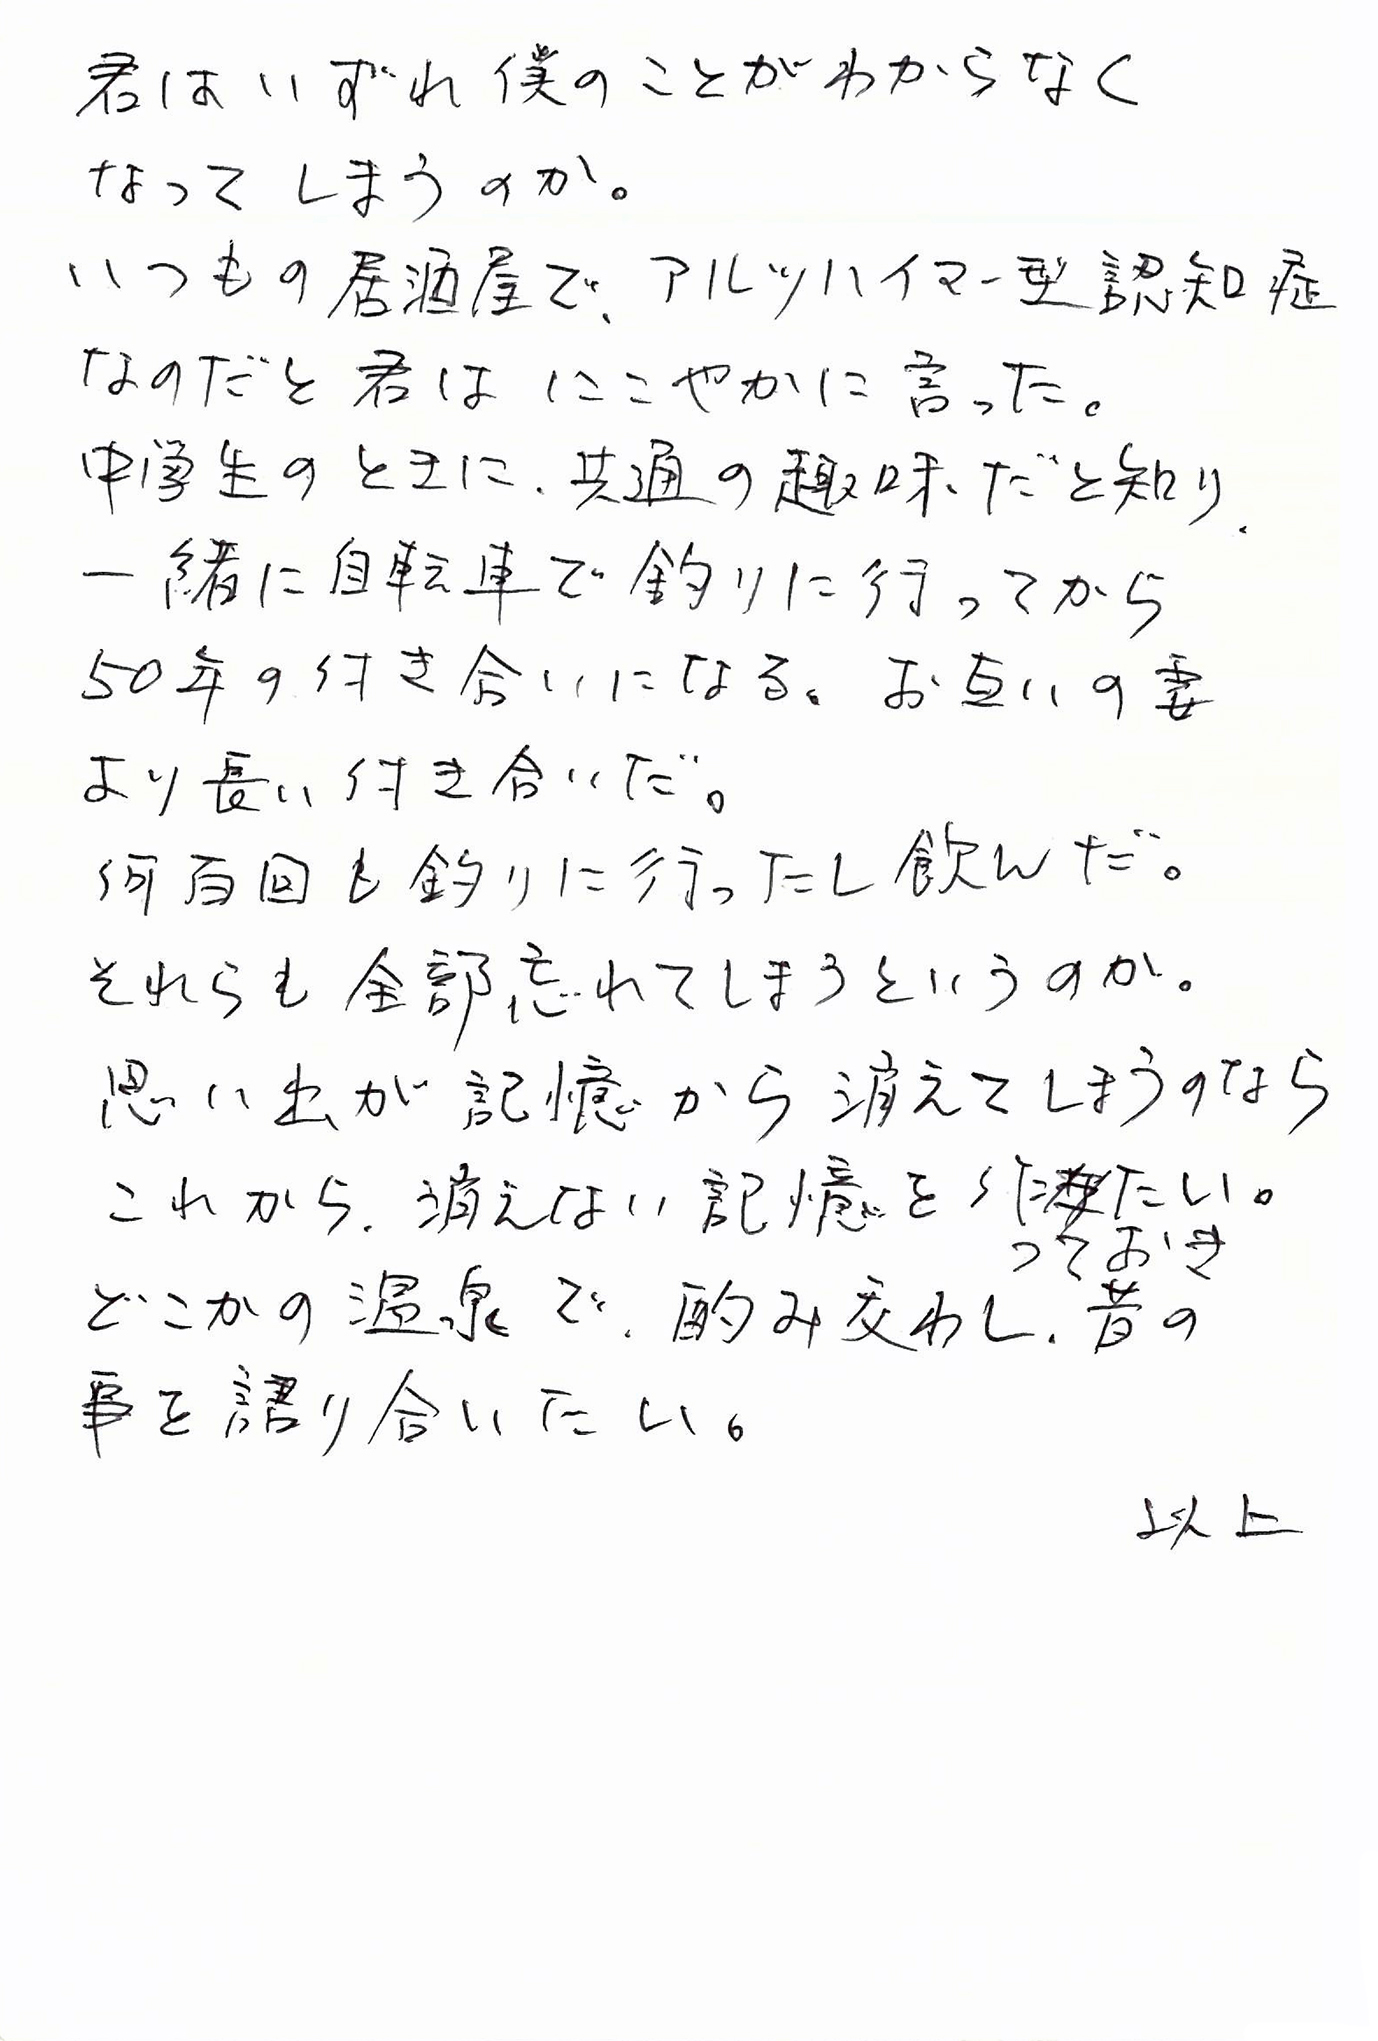 君はいずれ僕のことがわからなく
なってしまうのか。
いつもの居酒屋で、アルツハイマー型認知症
なのだと君はにこやかに言った。
中学生のときに、共通の趣味だと知り、
一緒に自転車で釣りに行ってから
50年の付き合いになる。お互いの妻
より長い付き合いだ。
何百回も釣りに行ったし飲んだ。
それらも全部忘れてしまうというのか。
思い出が記憶から消えてしまうのなら
これから、消えない記憶を作たい。
っておき
どこかの温泉で、酌み交わし、昔の
事を語り合いたい。
以上